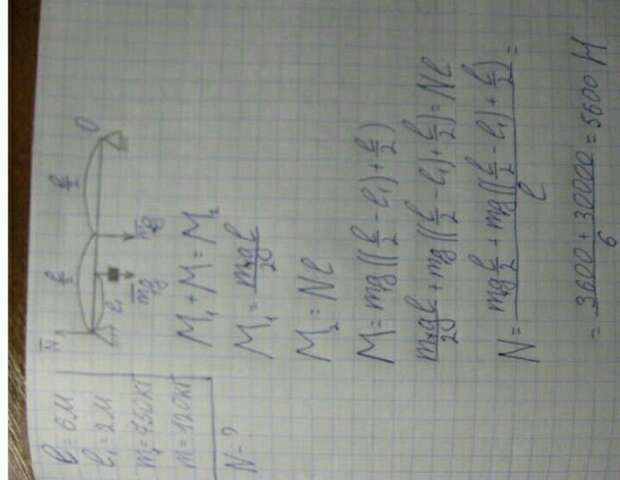 l = 6м
l₁ = 2м
m₁ = 750кг
m = 120кг
N - ?
N̄
O
l/2
l/2
l₁
mg
mg
M₁ + M = M₂
M₁ = m₁gl/2
M₂ = Nl
M = mg((l/2 - l₁) + l/2)
m₁gl/2 + mg((l/2 - l₁) + l/2) = Nl
N = (mg l/2 + mg((l/2 - l₁) + l/2))/l =
= (3600 + 30000)/6 = 5600 Н